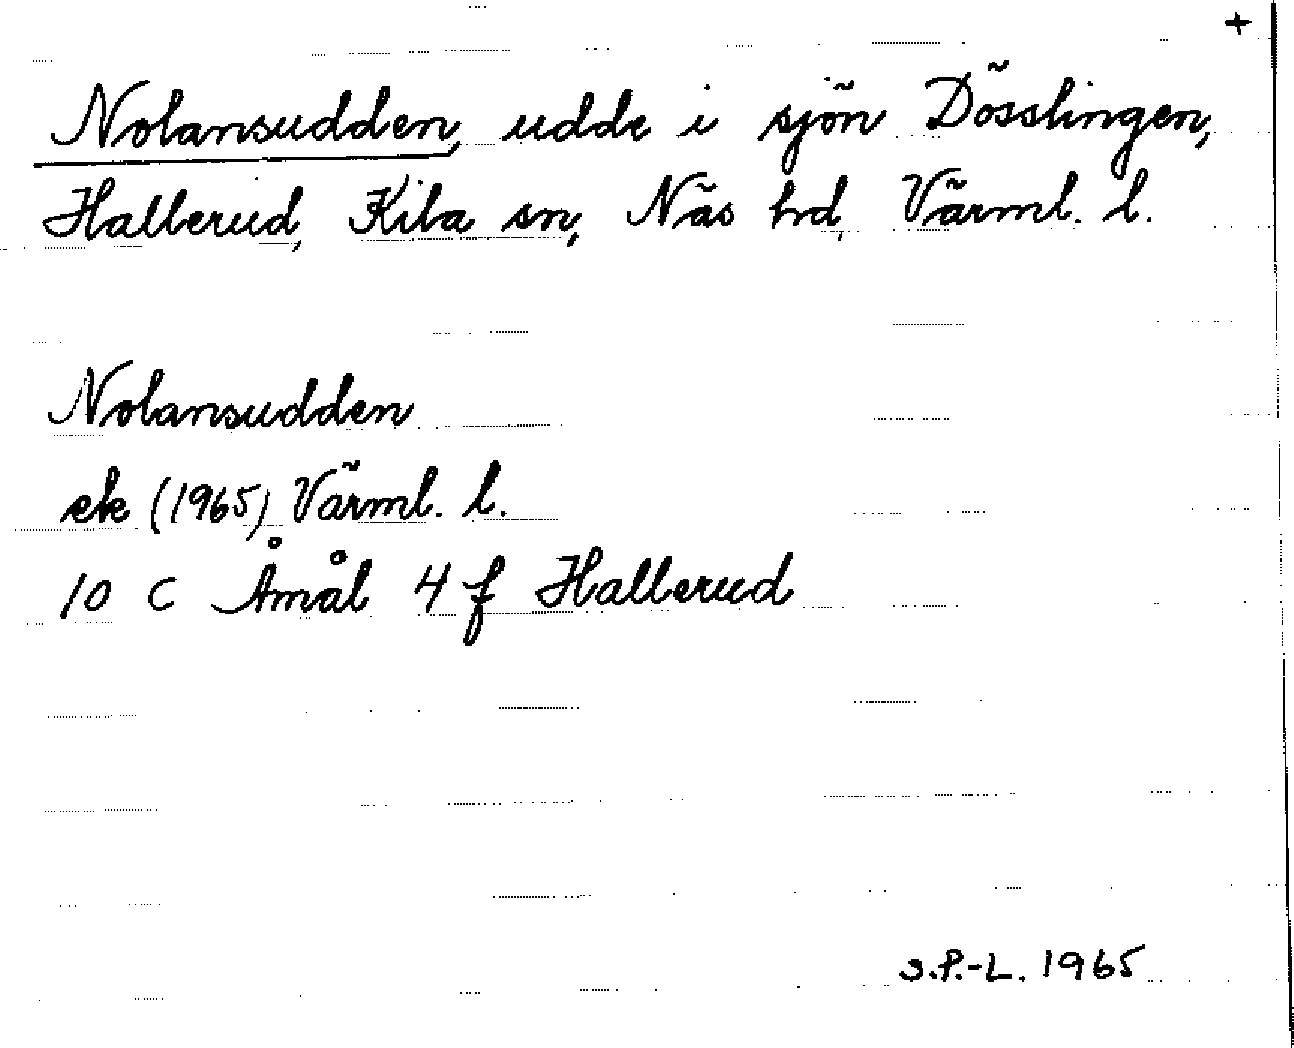 +
Nolansudden, udde i sjön Dösslingen,
Hallerud, Kila sn, Näs hd, Värml. l.
Nolansudden
ek (1965) Värml. l.
10 C Åmål 4 f Hallerud
S.P.-L. 1965